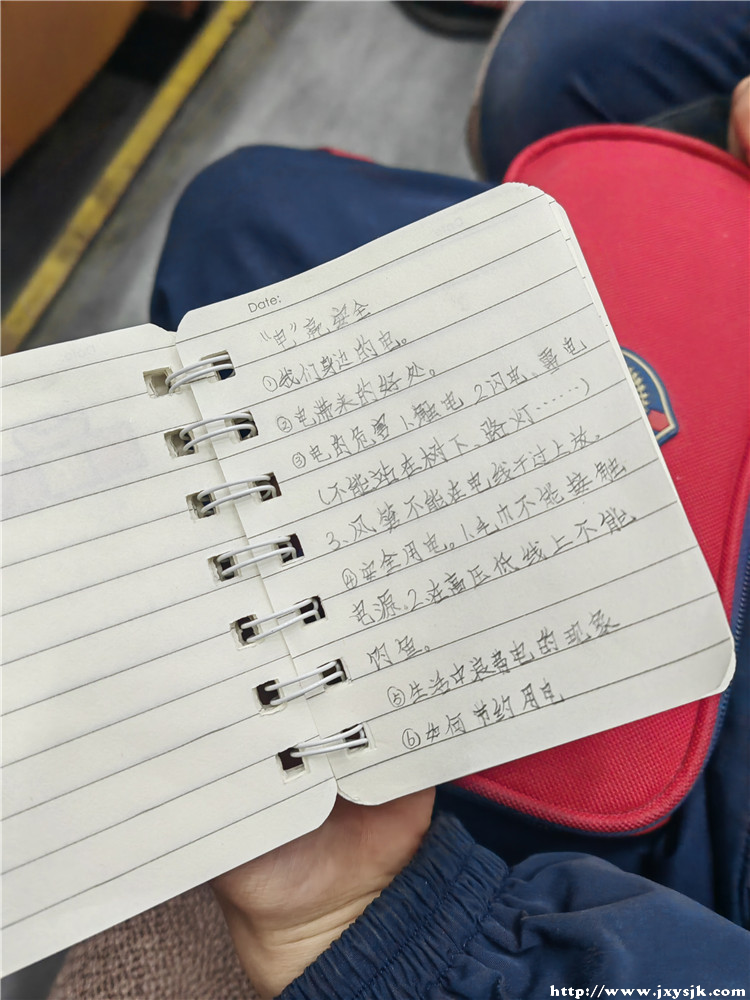 Date:
“电”亮安全
①我们身边的电。
②电带来的好处。
③电的危害 1.触电 2.闪电、雷电
(不能站在树下、路灯……)
3、风筝不能在电线干过上放。
④安全用电。1.毛巾不能接触
电源。2.在高压低线上不能
⑤生活中浪费电的现象
⑥如何节约用电
http://www.jxysjk.com